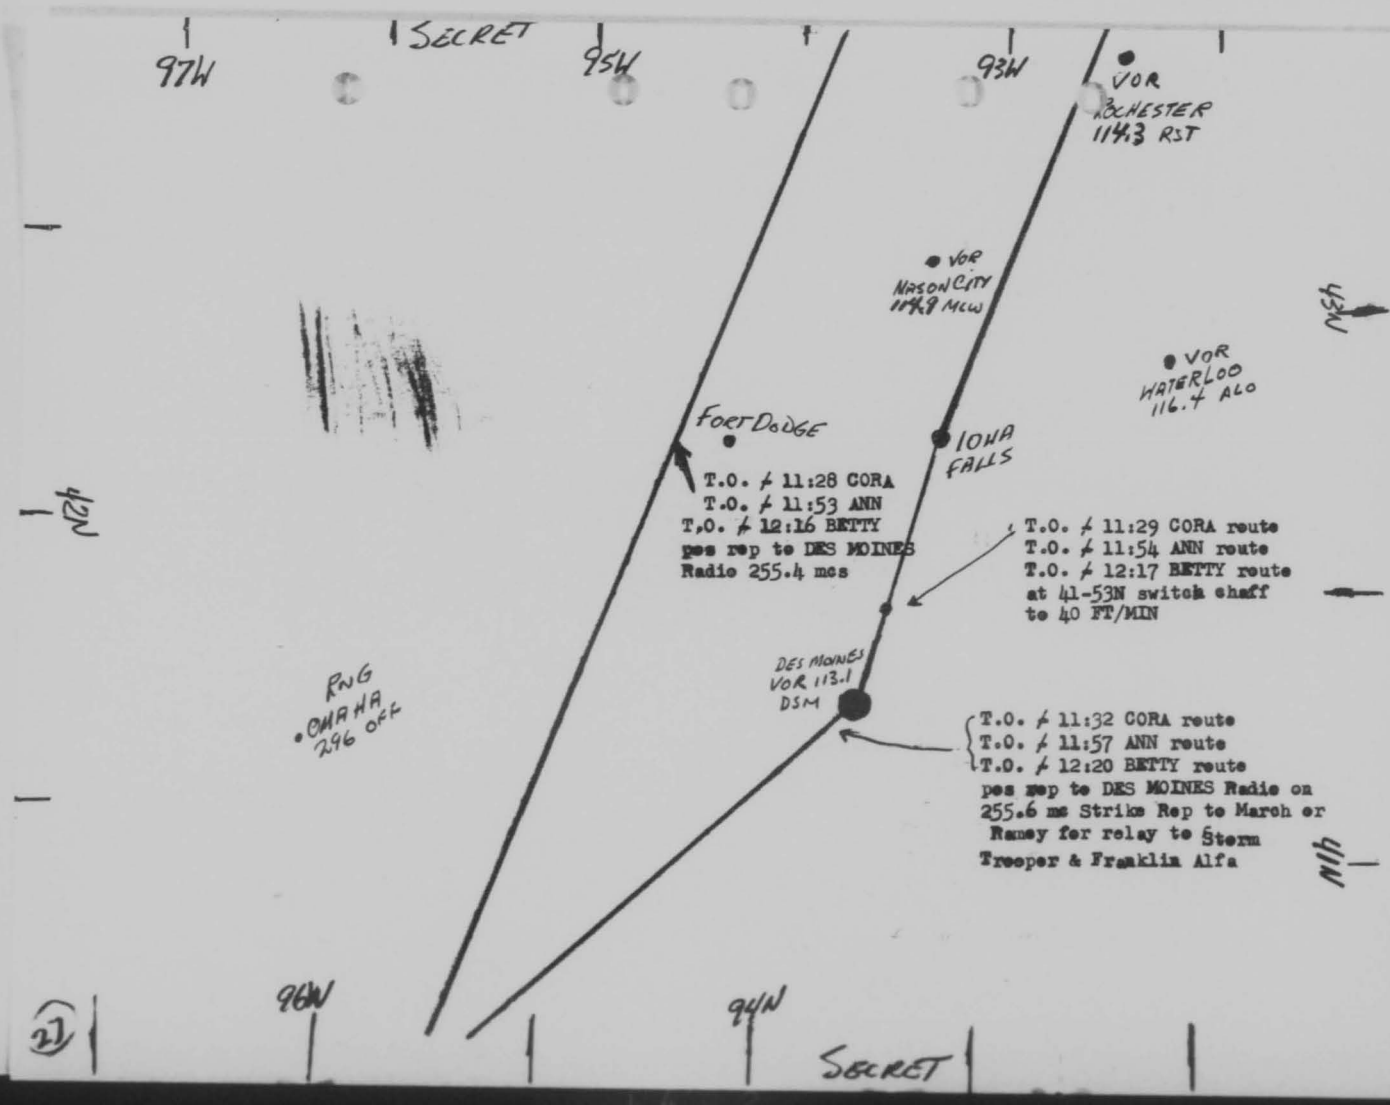 SECRET
97W
95W
93W
VOR
ROCHESTER
114.3 RST
VOR
MASON CITY
114.9 MCW
43N
VOR
WATERLOO
116.4 ALO
FORT DODGE
IOWA
FALLS
T.O. + 11:28 CORA
T.O. + 11:53 ANN
T.O. + 12:16 BETTY
pos rep to DES MOINES
Radio 255.4 mcs
42N
T.O. + 11:29 CORA route
T.O. + 11:54 ANN route
T.O. + 12:17 BETTY route
at 41-53N switch chaff
to 40 FT/MIN
RNG
OMAHA
296 OFF
DES MOINES
VOR 113.1
DSM
T.O. + 11:32 CORA route
T.O. + 11:57 ANN route
T.O. + 12:20 BETTY route
pos rep to DES MOINES Radio on
255.6 mc Strike Rep to March or
Ramey for relay to Storm
Trooper & Franklin Alfa
41N
96W
94W
27
SECRET